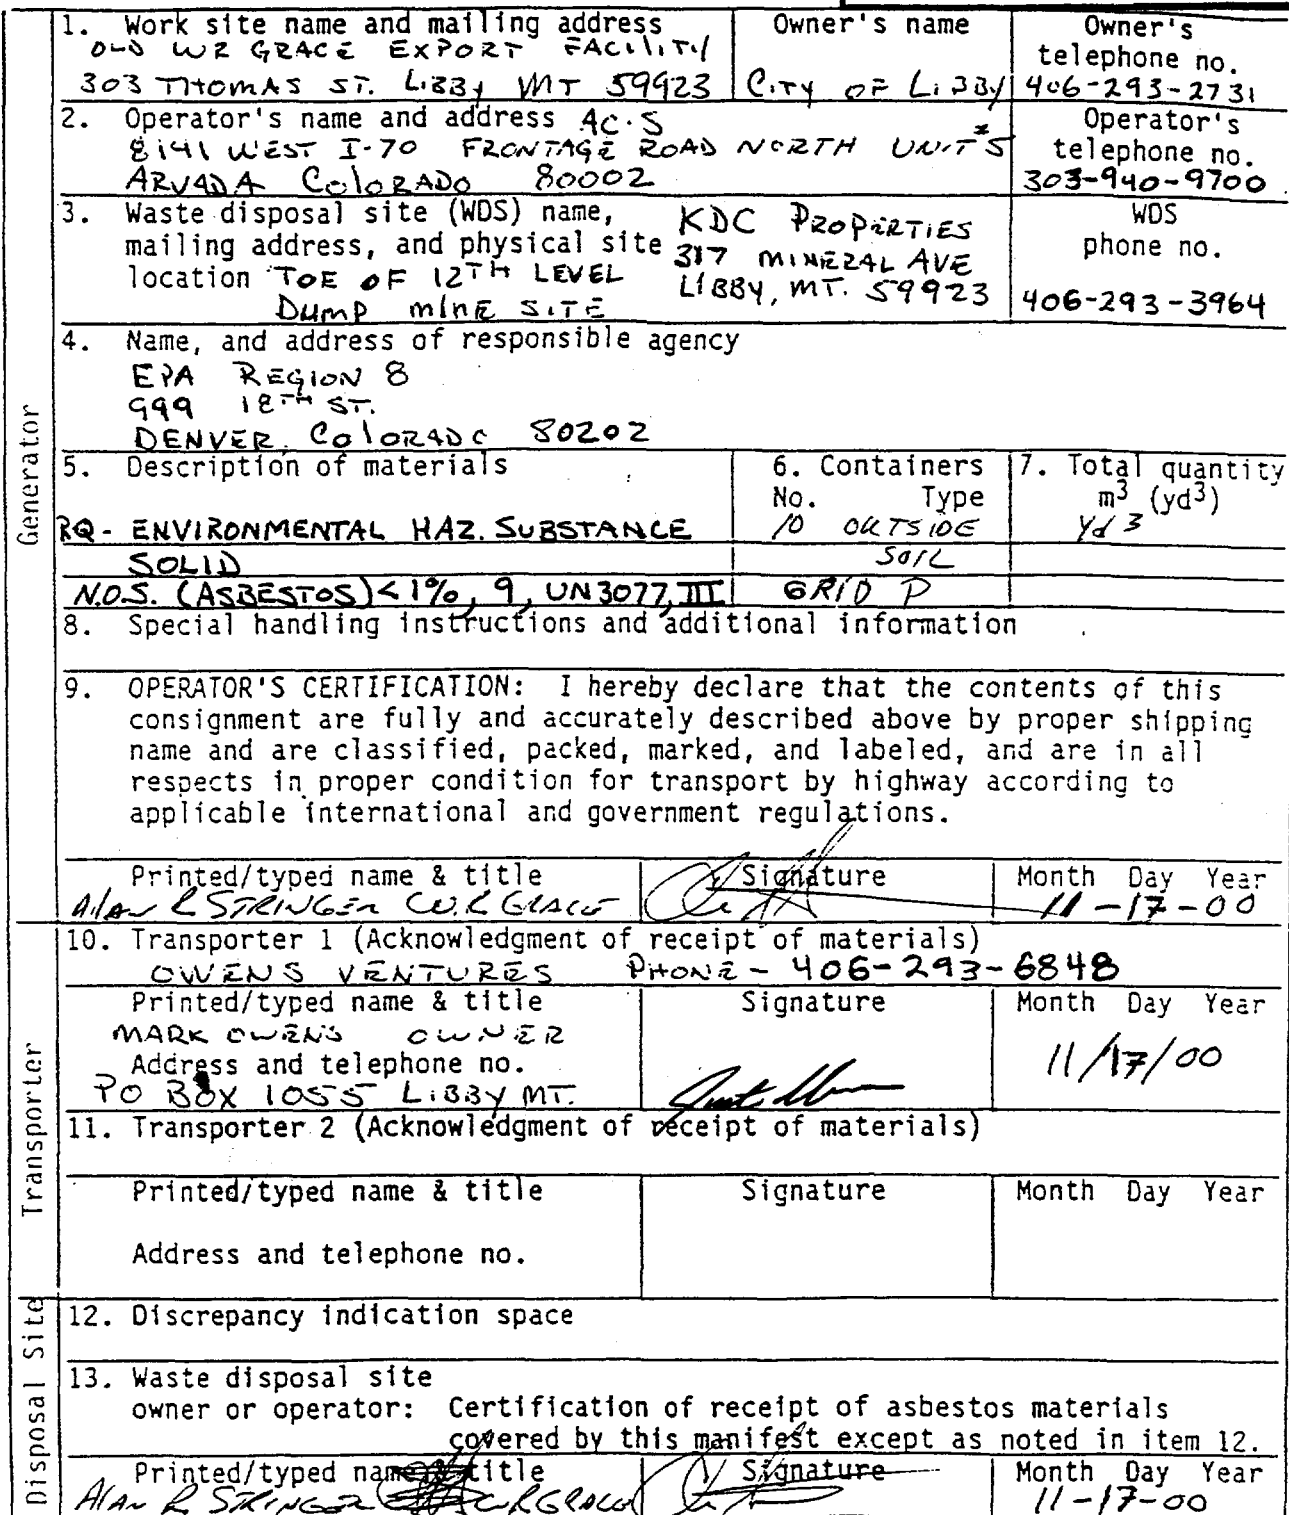 1. Work site name and mailing address
OLD WR GRACE EXPORT FACILITY
303 THOMAS ST. LIBBY MT 59923
Owner's name
CITY OF LIBBY
Owner's
telephone no.
406-293-2731
2. Operator's name and address AC·S
8141 WEST I-70 FRONTAGE ROAD NORTH UNIT #5
ARVADA COLORADO 80002
Operator's
telephone no.
303-940-9700
3. Waste disposal site (WDS) name,
mailing address, and physical site
location TOE OF 12TH LEVEL
DUMP MINE SITE
KDC PROPERTIES
317 MINERAL AVE
LIBBY, MT. 59923
WDS
phone no.
406-293-3964
4. Name, and address of responsible agency
EPA REGION 8
999 18TH ST.
DENVER, COLORADO 80202
Generator
5. Description of materials
RQ - ENVIRONMENTAL HAZ. SUBSTANCE
SOLID
N.O.S. (ASBESTOS) <1%, 9, UN3077, III
6. Containers
No. Type
10 OUTSIDE
SOIL
GRID P
7. Total quantity
m3 (yd3)
yd3
8. Special handling instructions and additional information
9. OPERATOR'S CERTIFICATION: I hereby declare that the contents of this
consignment are fully and accurately described above by proper shipping
name and are classified, packed, marked, and labeled, and are in all
respects in proper condition for transport by highway according to
applicable international and government regulations.
Printed/typed name & title
Alan R STRINGER W.R GRACE
Signature
Month Day Year
11-17-00
Transporter
10. Transporter 1 (Acknowledgment of receipt of materials)
OWENS VENTURES PHONE - 406-293-6848
Printed/typed name & title
MARK OWENS OWNER
Address and telephone no.
PO BOX 1055 LIBBY MT.
Signature
Month Day Year
11/17/00
11. Transporter 2 (Acknowledgment of receipt of materials)
Printed/typed name & title
Signature
Month Day Year
Address and telephone no.
Disposal Site
12. Discrepancy indication space
13. Waste disposal site
owner or operator: Certification of receipt of asbestos materials
covered by this manifest except as noted in item 12.
Printed/typed name & title
Alan R STRINGER WRGRACE
Signature
Month Day Year
11-17-00